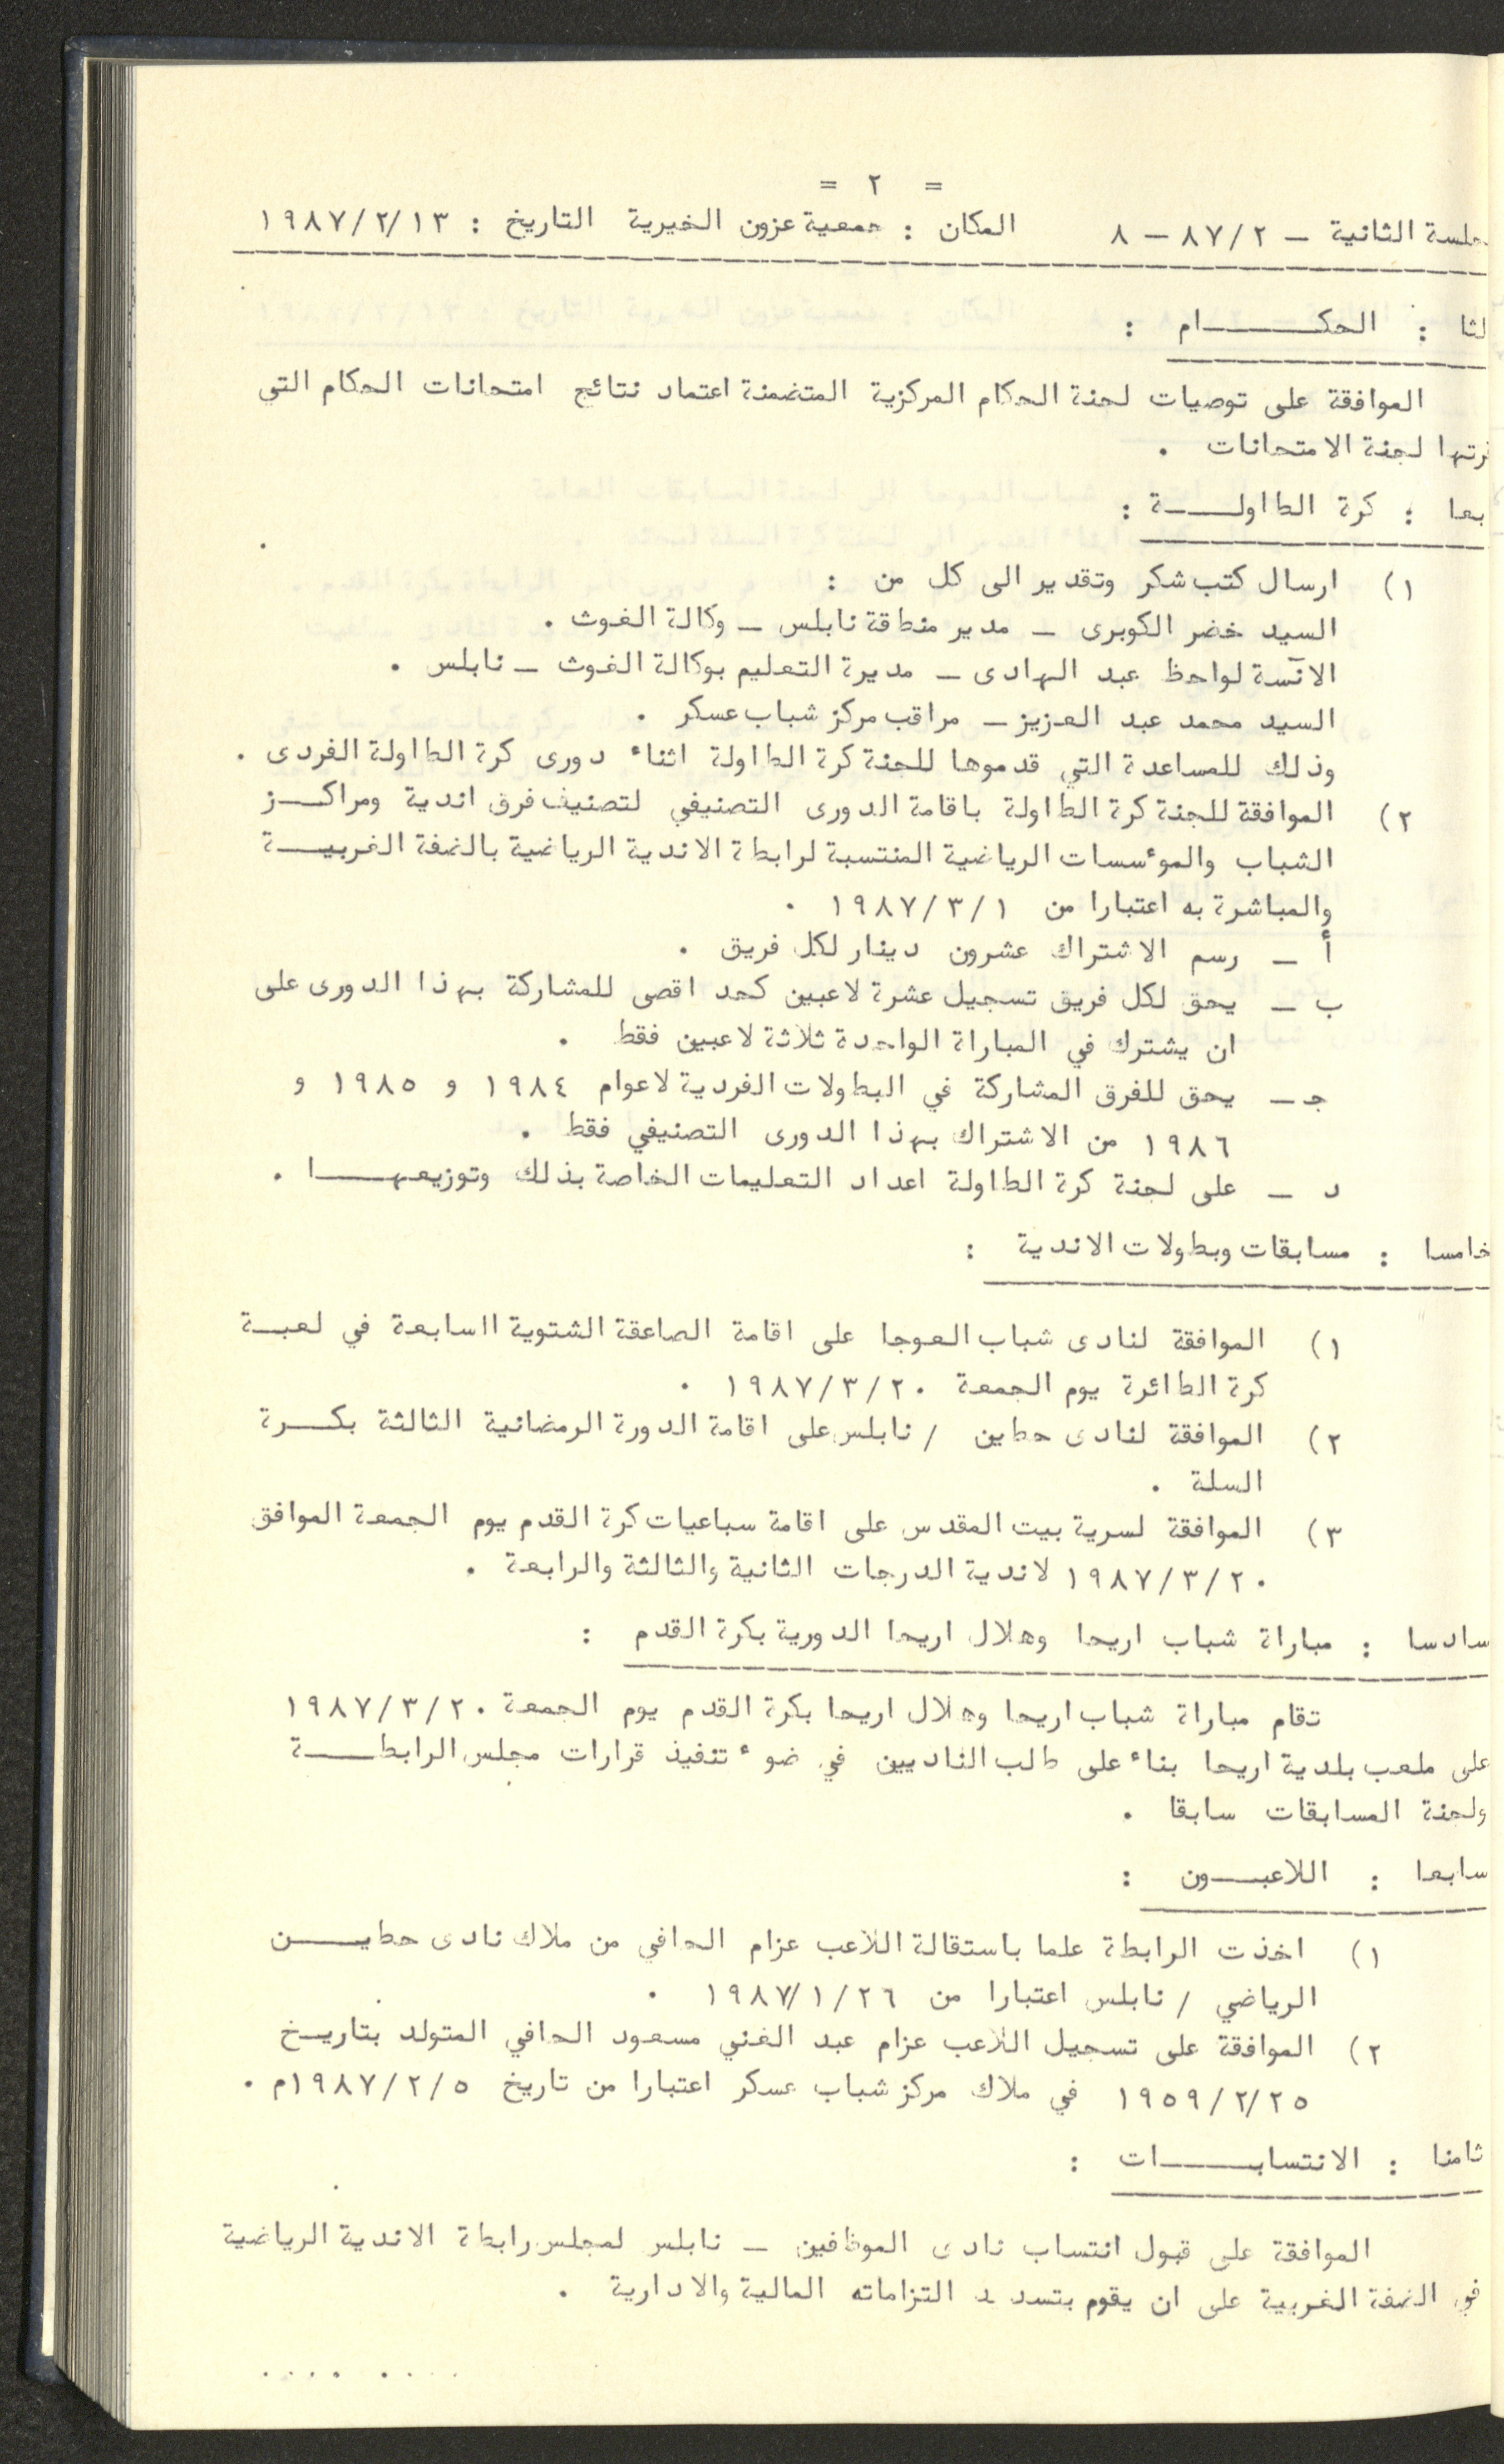 = ٢ =
جلسة الثانية – ٨٧/٢ – ٨ المكان : جمعية عزون الخيرية التاريخ : ١٩٨٧/٢/١٣
لثا : الحكـــــام :
الموافقة على توصيات لجنة الحكام المركزية المتضمنة اعتماد نتائج امتحانات الحكام التي
رتها لجنة الامتحانات .
بعا : كرة الطاولـــة :
١) ارسال كتب شكر وتقدير الى كل من :
السيد خضر الكوبرى – مدير منطقة نابلس – وكالة الغوث .
الآنسة لواحظ عبد الهادى – مديرة التعليم بوكالة الغوث – نابلس .
السيد محمد عبد العزيز – مراقب مركز شباب عسكر .
وذلك للمساعدة التي قدموها للجنة كرة الطاولة اثناء دورى كرة الطاولة الفردى .
٢) الموافقة للجنة كرة الطاولة باقامة الدورى التصنيفي لتصنيف فرق اندية ومراكــز
الشباب والمؤسسات الرياضية المنتسبة لرابطة الاندية الرياضية بالضفة الغربيـــة
والمباشرة به اعتبارا من ١٩٨٧/٣/١ .
أ – رسم الاشتراك عشرون دينار لكل فريق .
ب – يحق لكل فريق تسجيل عشرة لاعبين كحد اقصى للمشاركة بهذا الدورى على
ان يشترك في المباراة الواحدة ثلاثة لاعبين فقط .
جـ – يحق للفرق المشاركة في البطولات الفردية لاعوام ١٩٨٤ و ١٩٨٥ و
١٩٨٦ من الاشتراك بهذا الدورى التصنيفي فقط .
د – على لجنة كرة الطاولة اعداد التعليمات الخاصة بذلك وتوزيعهـــا .
خامسا : مسابقات وبطولات الاندية :
١) الموافقة لنادى شباب العوجا على اقامة الصاعقة الشتوية السابعة في لعبــة
كرة الطائرة يوم الجمعة ١٩٨٧/٣/٢٠ .
٢) الموافقة لنادى حطين / نابلس على اقامة الدورة الرمضانية الثالثة بكــرة
السلة .
٣) الموافقة لسرية بيت المقدس على اقامة سباعيات كرة القدم يوم الجمعة الموافق
١٩٨٧/٣/٢٠ لاندية الدرجات الثانية والثالثة والرابعة .
سادسا : مباراة شباب اريحا وهلال اريحا الدورية بكرة القدم :
تقام مباراة شباب اريحا وهلال اريحا بكرة القدم يوم الجمعة ١٩٨٧/٣/٢٠
على ملعب بلدية اريحا بناء على طلب الناديين في ضوء تنفيذ قرارات مجلس الرابطـــة
ولجنة المسابقات سابقا .
سابعا : اللاعبــون :
١) اخذت الرابطة علما باستقالة اللاعب عزام الحافي من ملاك نادى حطيـــن
الرياضي / نابلس اعتبارا من ١٩٨٧/١/٢٦ .
٢) الموافقة على تسجيل اللاعب عزام عبد الغني مسعود الحافي المتولد بتاريــخ
١٩٥٩/٢/٢٥ في ملاك مركز شباب عسكر اعتبارا من تاريخ ١٩٨٧/٢/٥م .
ثامنا : الانتسابـــات :
الموافقة على قبول انتساب نادى الموظفين – نابلس لمجلس رابطة الاندية الرياضية
في الضفة الغربية على ان يقوم بتسدد التزاماته المالية والادارية .
.... ....